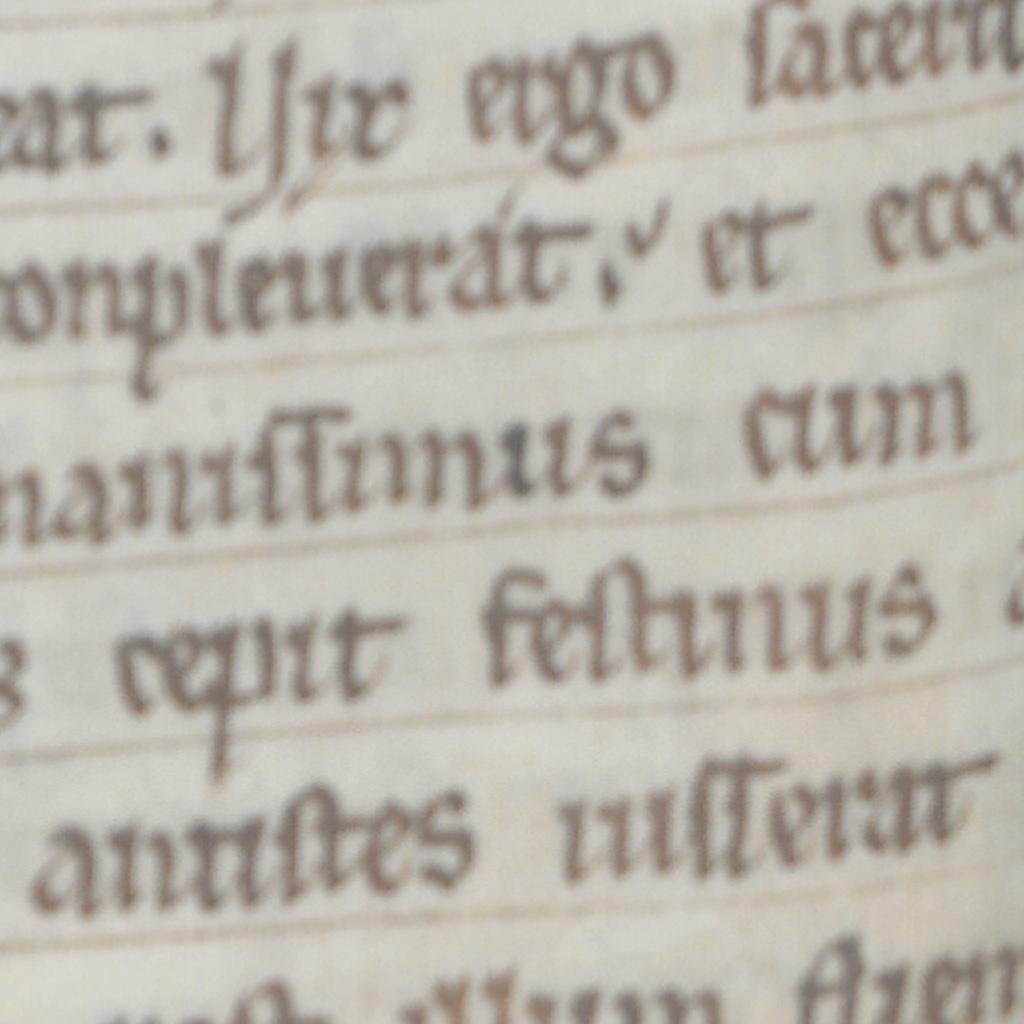 eat. Vix ergo sacerd
conpleuerat; et ecce
manissimus cum
cepit festinus
antistes iusserat
illum